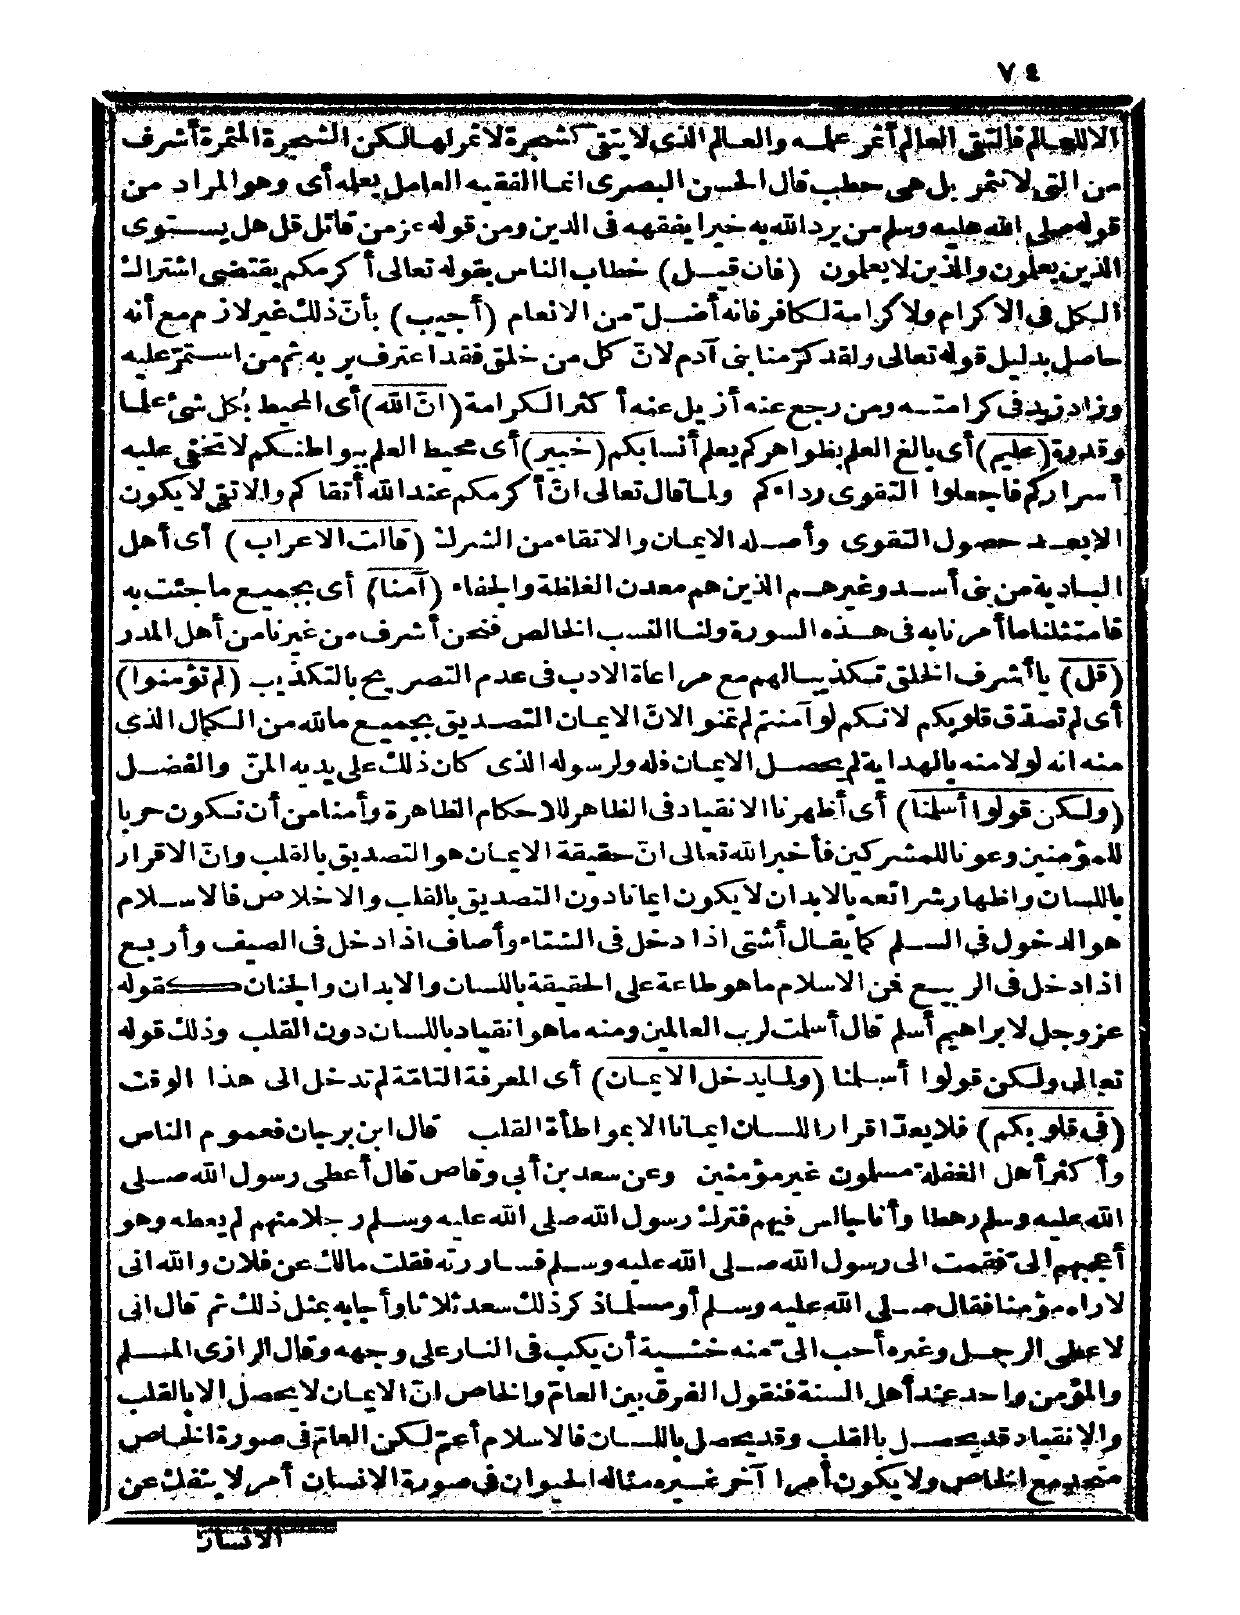 ٧٤
الا للعالم فالتقى العالم أثمر علمه والعالم الذى لا يتقى كشجرة لا ثمر لها لكن الشجرة المثمرة أشرف
من التى لا تثمر بل هى حطب قال الحسن البصرى انما الفقيه العامل بعلمه أى وهو المراد من
قوله صلى الله عليه وسلم من يرد الله به خيرا يفقهه فى الدين ومن قوله عز من قائل قل هل يستوى
الذين يعلمون والذين لا يعلمون (فان قيل) خطاب الناس بقوله تعالى أكرمكم يقتضى اشتراك
الكل فى الاكرام ولا كرامة لكافر فانه أضل من الانعام (أجيب) بأنّ ذلك غير لازم مع أنه
حاصل بدليل قوله تعالى ولقد كرّمنا بنى آدم لانّ كل من خلق فقد اعترف بربه ثم من استمرّ عليه
وزاد زيد فى كرامته ومن رجع عنه أزيل عنه أكثر الكرامة (انّ الله) أى المحيط بكل شئ علما
وقدرة (عليم) أى بالغ العلم بظواهركم يعلم أنسابكم (خبير) أى محيط العلم ببواطنكم لا تخفى عليه
أسراركم فاجعلوا التقوى رداءكم ولما قال تعالى انّ أكرمكم عند الله أتقاكم والاتقى لا يكون
الا بعد حصول التقوى وأصله الايمان والاتقاء من الشرك (قالت الاعراب) أى أهل
البادية من بنى أسد وغيرهم الذين هم معدن الغلظة والجفاء (آمنا) أى بجميع ما جئت به
فامتثلنا ما أمرنا به فى هذه السورة ولنا النسب الخالص فنحن أشرف من غيرنا من أهل المدر
(قل) يا أشرف الخلق تكذيبا لهم مع مراعاة الادب فى عدم التصريح بالتكذيب (لم تؤمنوا)
أى لم تصدّق قلوبكم لانكم لو آمنتم لم تمنوا لانّ الايمان التصديق بجميع ما لله من الكمال الذى
منه انه لولا منه بالهداية لم يحصل الايمان فله ولرسوله الذى كان ذلك على يديه المنّ والفضل
(ولكن قولوا أسلمنا) أى أظهرنا الانقياد فى الظاهر للاحكام الظاهرة وأمنا من أن نكون حربا
للمؤمنين وعونا للمشركين فأخبر الله تعالى انّ حقيقة الايمان هو التصديق بالقلب وانّ الاقرار
باللسان واظهار شرائعه بالابدان لا يكون ايمانا دون التصديق بالقلب والاخلاص فالاسلام
هو الدخول فى السلم كما يقال أشتى اذا دخل فى الشتاء وأصاف اذا دخل فى الصيف وأربع
اذا دخل فى الربيع فمن الاسلام ما هو طاعة على الحقيقة باللسان والابدان والجنان كقوله
عز وجل لابراهيم أسلم قال أسلمت لرب العالمين ومنه ما هو انقياد باللسان دون القلب وذلك قوله
تعالى ولكن قولوا أسلمنا (ولما يدخل الايمان) أى المعرفة التامّة لم تدخل الى هذا الوقت
(فى قلوبكم) فلا يعدّ اقرار اللسان ايمانا الا بمواطأة القلب قال ابن برجان فعموم الناس
وأكثر أهل الغفلة مسلمون غير مؤمنين وعن سعد بن أبى وقاص قال أعطى رسول الله صلى
الله عليه وسلم رهطا وأنا جالس فيهم فترك رسول الله صلى الله عليه وسلم رجلا منهم لم يعطه وهو
أعجبهم الىّ فقمت الى رسول الله صلى الله عليه وسلم فساررته فقلت مالك عن فلان والله انى
لا راه مؤمنا فقال صلى الله عليه وسلم أو مسلما ذكر ذلك سعد ثلاثا وأجابه بمثل ذلك ثم قال انى
لاعطى الرجل وغيره أحب الىّ منه خشية أن يكب فى النار على وجهه وقال الرازى المسلم
والمؤمن واحد عند أهل السنة فنقول الفرق بين العامّ والخاص انّ الايمان لا يحصل الا بالقلب
والانقياد قد يحصل بالقلب وقد يحصل باللسان فالاسلام أعمّ لكن العامّ فى صورة الخاص
متحد مع الخاص ولا يكون أمرا آخر غيره مثاله الحيوان فى صورة الانسان أمر لا ينفك عن
الانسان